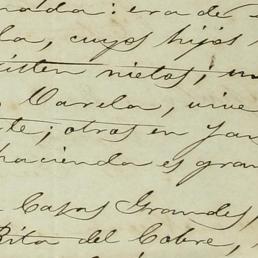 nada: era de
la, cuyos hijos
isten nietos; un
Varela, vive
te; otros en Jan
hacienda es gran
Casas Grandes,
Rita del Cobre,